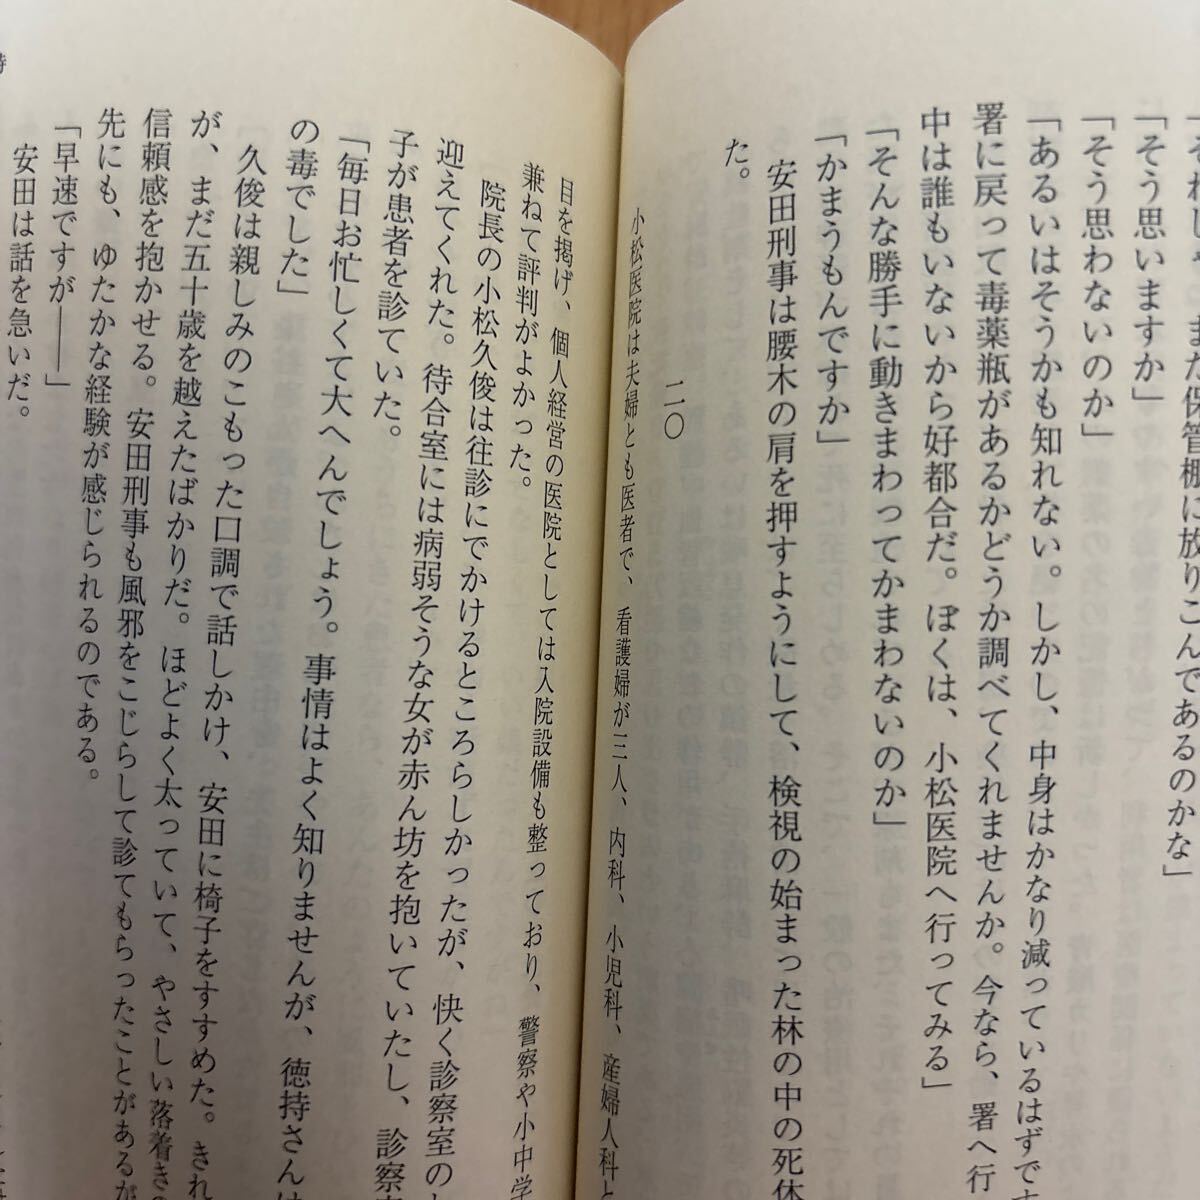 「それじゃ、まだ保管棚に放りこんであるのかな」
「そう思いますか」
「そう思わないのか」
「あるいはそうかも知れない。しかし、中身はかなり減っているはずです
署に戻って毒薬瓶があるかどうか調べてくれませんか。今なら、署へ行
中は誰もいないから好都合だ。ぼくは、小松医院へ行ってみる」
「そんな勝手に動きまわってかまわないのか」
「かまうもんですか」
安田刑事は腰木の肩を押すようにして、検視の始まった林の中の死体
た。
二〇
小松医院は夫婦とも医者で、看護婦が三人、内科、小児科、産婦人科と
目を掲げ、個人経営の医院としては入院設備も整っており、警察や小中学
兼ねて評判がよかった。
院長の小松久俊は往診にでかけるところらしかったが、快く診察室の
迎えてくれた。待合室には病弱そうな女が赤ん坊を抱いていたし、診察
子が患者を診ていた。
「毎日お忙しくて大へんでしょう。事情はよく知りませんが、徳持さんは
の毒でした」
久俊は親しみのこもった口調で話しかけ、安田に椅子をすすめた。きれ
が、まだ五十歳を越えたばかりだ。ほどよく太っていて、やさしい落着き
信頼感を抱かせる。安田刑事も風邪をこじらして診てもらったことがあるが
先にも、ゆたかな経験が感じられるのである。
「早速ですが――」
安田は話を急いだ。